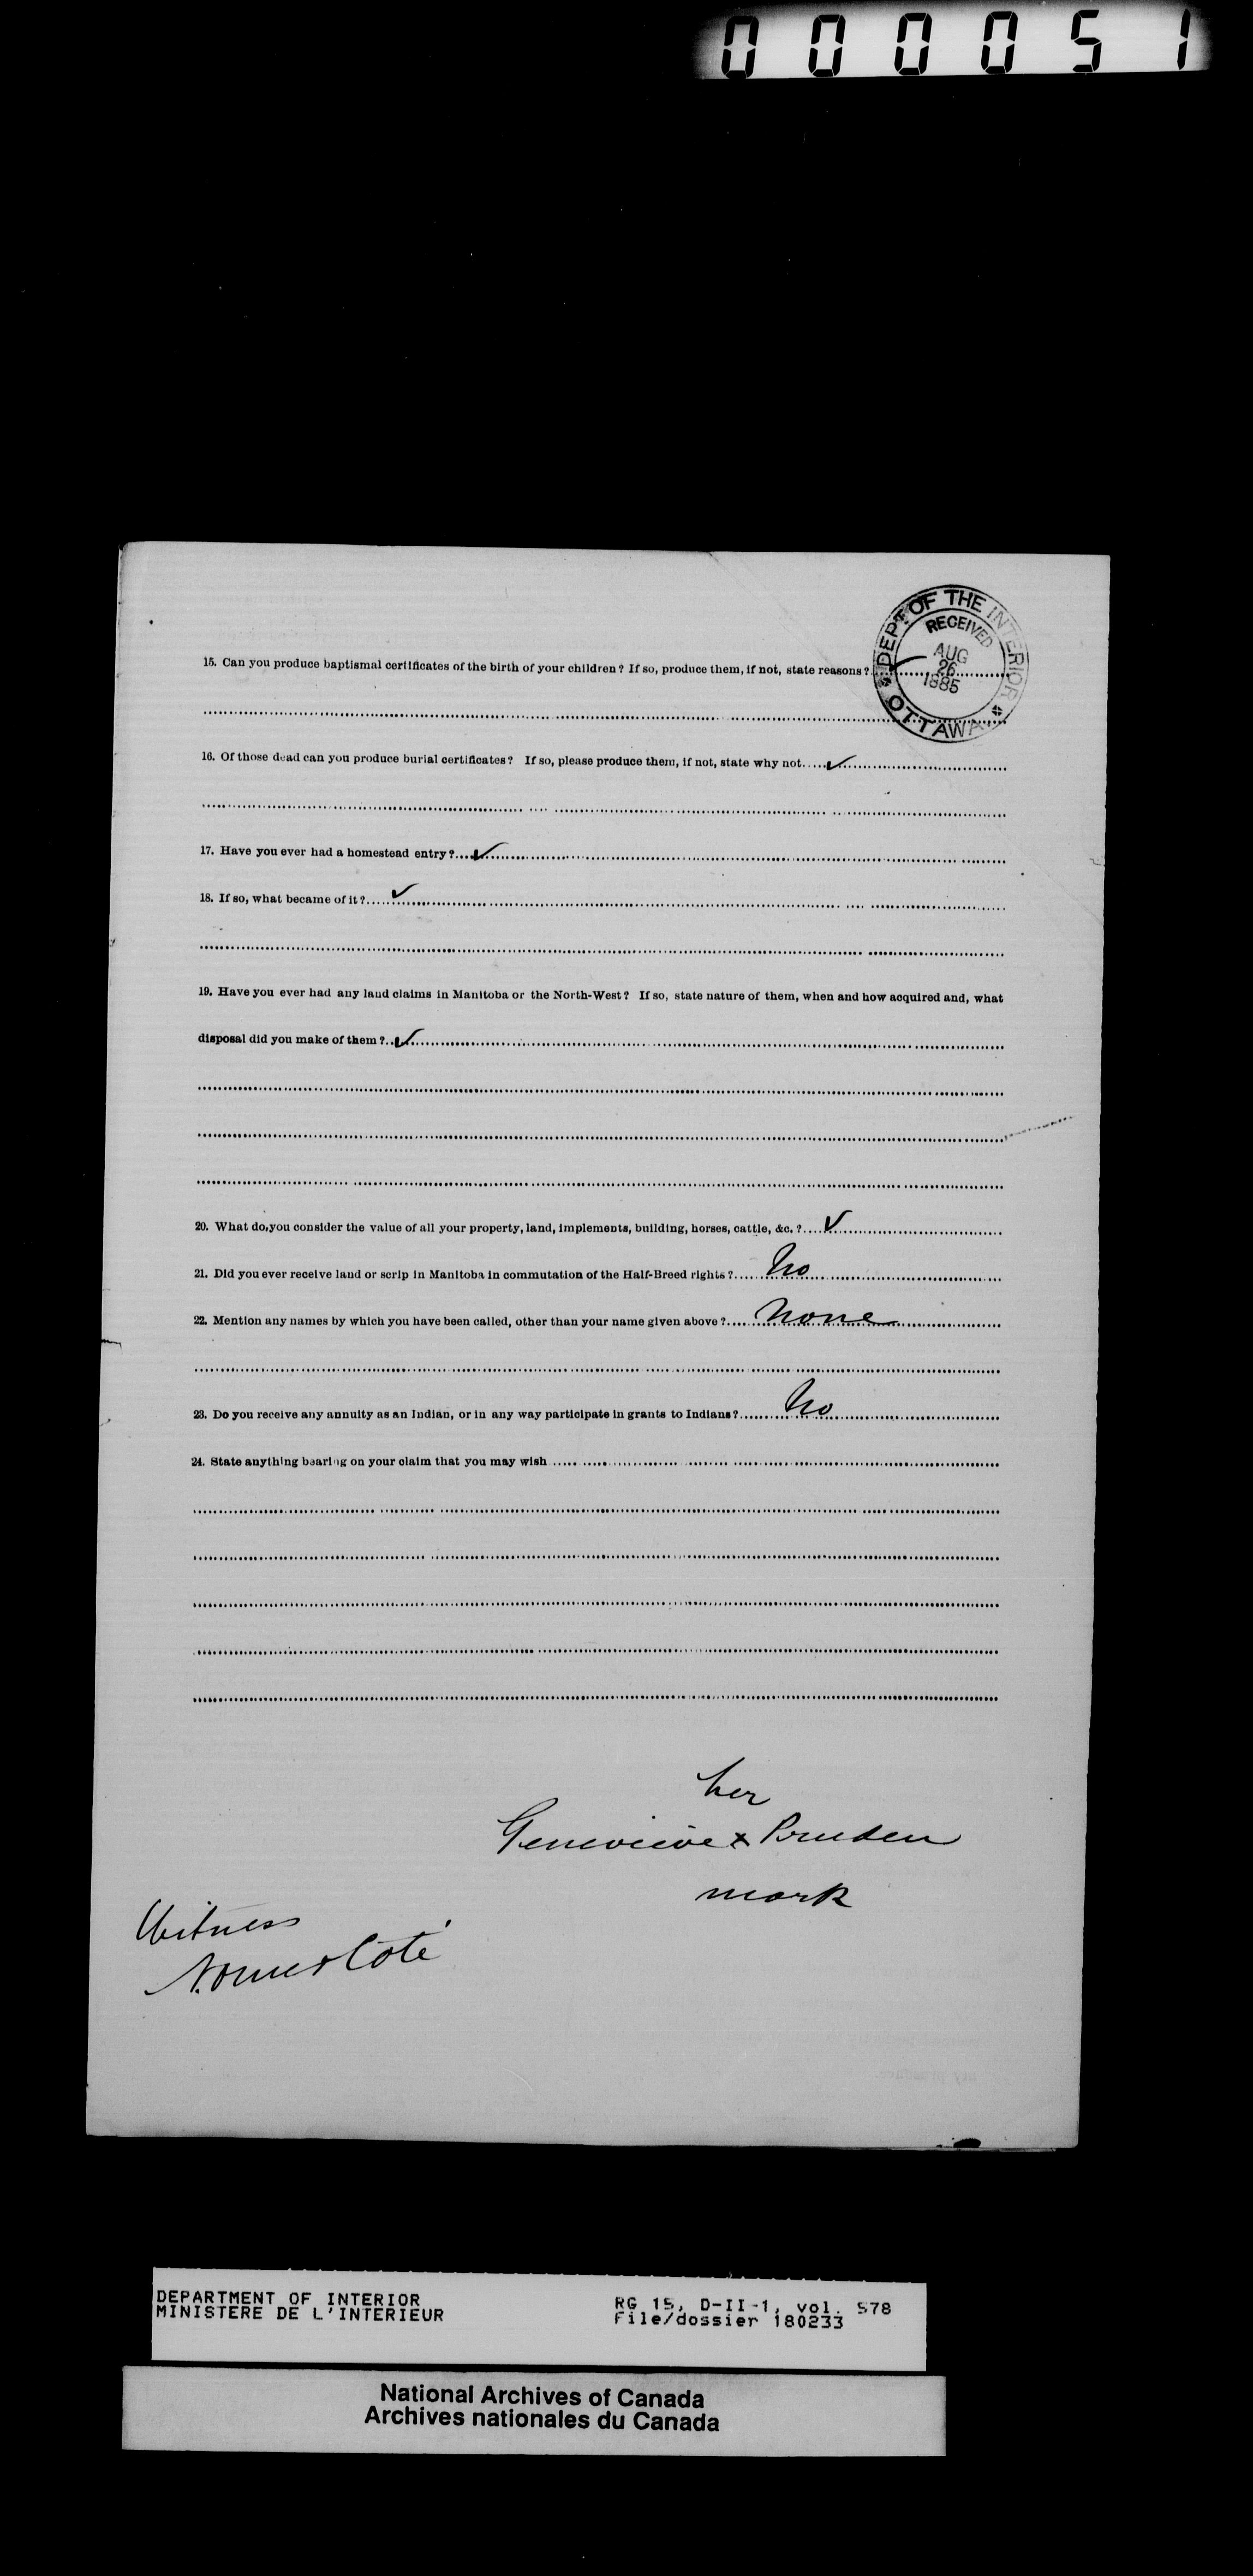 000051
DEPT OF THE INTERIOR
RECEIVED
AUG
26
1885
OTTAWA
15. Can you produce baptismal certificates of the birth of your children? If so, produce them, if not, state reasons? ✓
16. Of those dead can you produce burial certificates? If so, please produce them, if not, state why not ✓
17. Have you ever had a homestead entry? ✓
18. If so, what became of it? ✓
19. Have you ever had any land claims in Manitoba or the North-West? If so, state nature of them, when and how acquired and, what
disposal did you make of them? ✓
20. What do you consider the value of all your property, land, implements, building, horses, cattle, &c. ? ✓
21. Did you ever receive land or scrip in Manitoba in commutation of the Half-Breed rights? No
22. Mention any names by which you have been called, other than your name given above? None
23. Do you receive any annuity as an Indian, or in any way participate in grants to Indians? No
24. State anything bearing on your claim that you may wish
her
Genevieve x Pruden
mark
Witness
Côté
DEPARTMENT OF INTERIOR
MINISTERE DE L'INTERIEUR
RG 15, D-II-1, vol. 578
File/dossier 180233
National Archives of Canada
Archives nationales du Canada